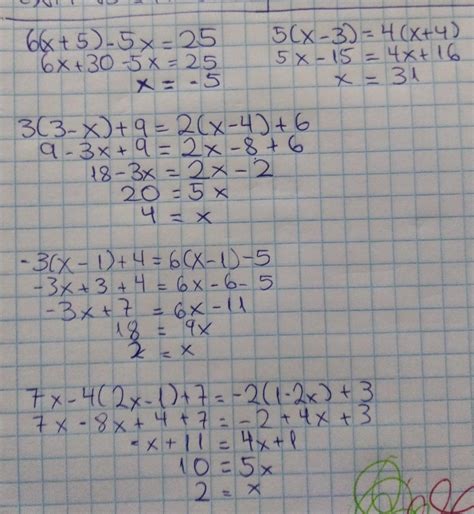 6(x+5)-5x=25
6x+30-5x=25
x=-5
5(x-3)=4(x+4)
5x-15=4x+16
x=31
3(3-x)+9=2(x-4)+6
9-3x+9=2x-8+6
18-3x=2x-2
20=5x
4=x
-3(x-1)+4=6(x-1)-5
-3x+3+4=6x-6-5
-3x+7=6x-11
18=9x
2=x
7x-4(2x-1)+7=-2(1-2x)+3
7x-8x+4+7=-2+4x+3
-x+11=4x+1
10=5x
2=x